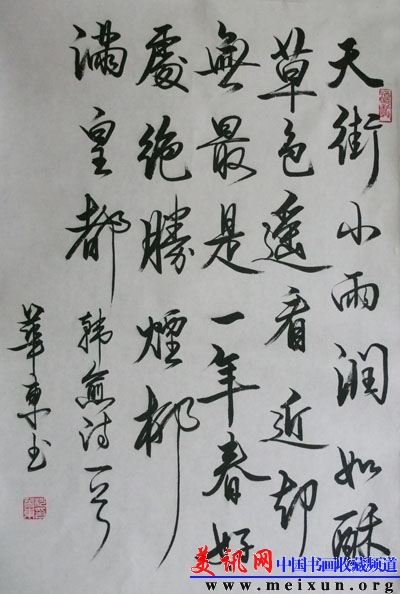 天街小雨润如酥
草色遥看近却
無最是一年春好
處绝勝煙柳
满皇都
韩愈诗一首
華東书
美讯网 中国书画收藏频道
www.meixun.org